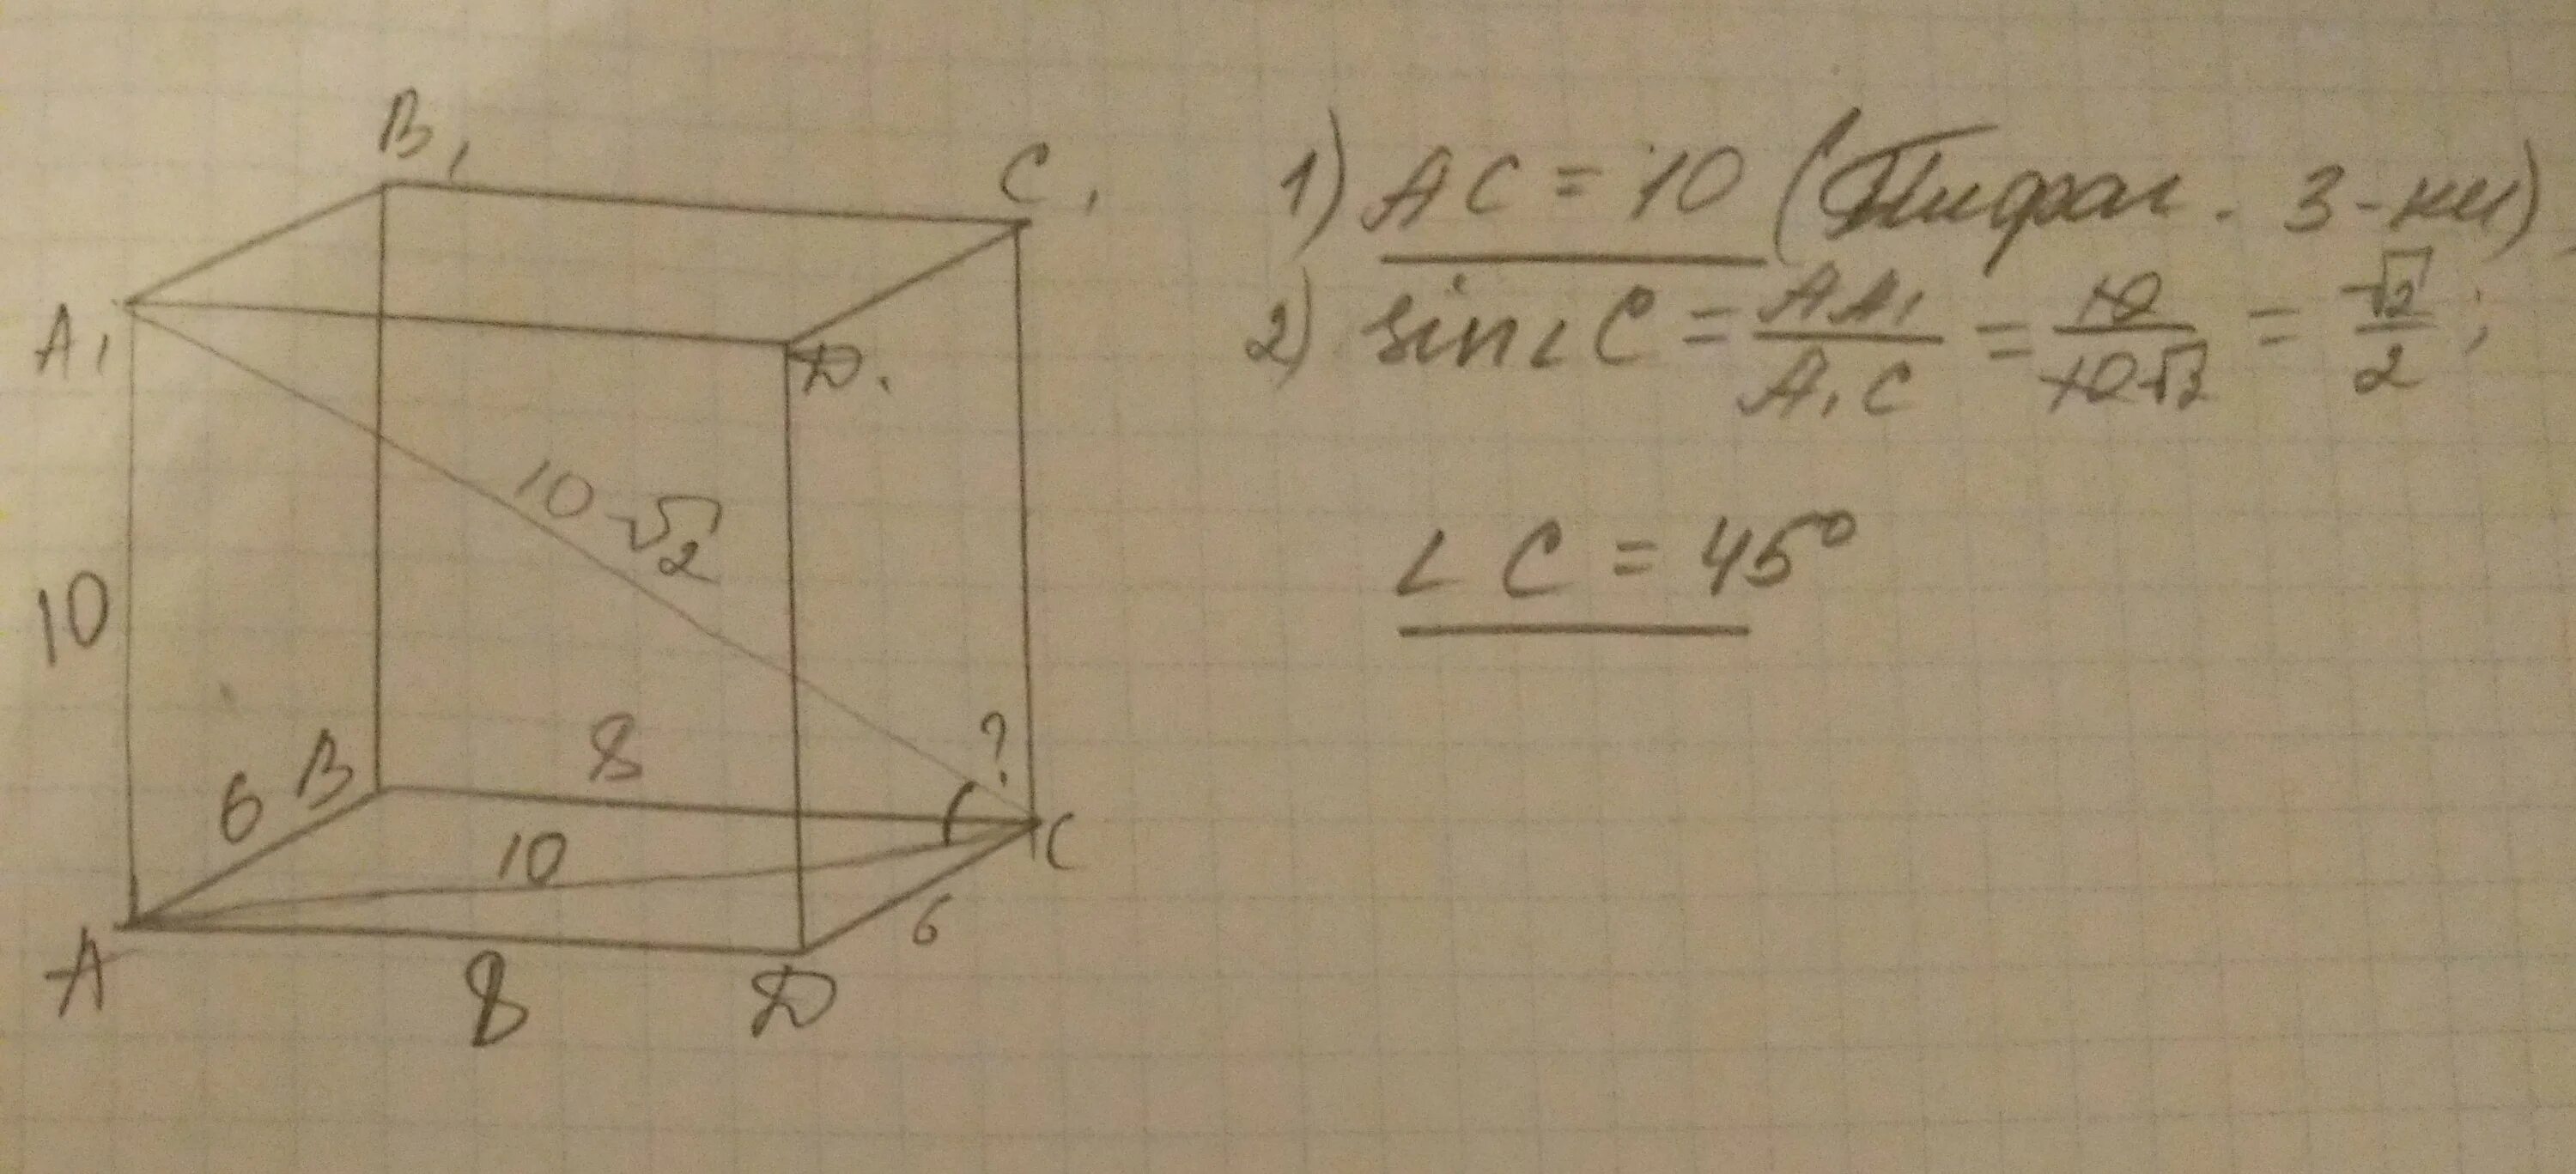 B₁
C₁
A₁
D₁
10√2
10
8
?
6 B
10
C
6
A
8
D
1) AC = 10 (Пифаг. 3-ки)
2) sin∠C = AA₁/A₁C = 10/10√2 = √2/2;
∠C = 45°